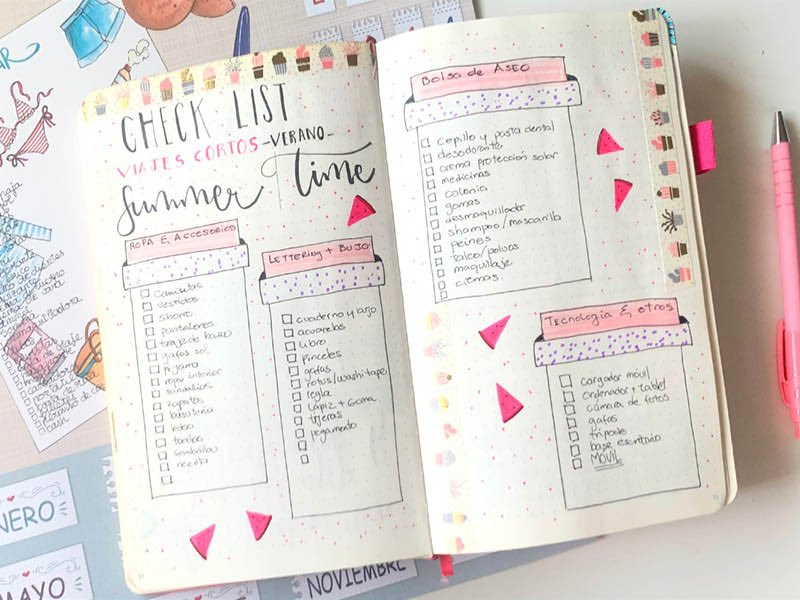 CHECK LIST
VIAJES CORTOS -VERANO-
Summer Time
ROPA & ACCESORIOS
camisetas
vestidos
shorts
pantalones
traje de baño
gafas sol
pijama
ropa interior
sandalias
zapatos
bisutería
bolso
toallas
sombrilla
LETTERING + BUJO
cuaderno y
acuarelas
libro
pinceles
gafas
rotus/washitape
regla
lápiz + goma
tijeras
pegamento
Bolsa de ASEO
cepillo y pasta dental
desodorante
crema protección solar
medicinas
colonia
gomas
desmaquillador
shampoo/mascarilla
peines
talco/polvos
maquillaje
cremas
Tecnología & otros
cargador móvil
ordenador + tablet
cámara de fotos
gafas
trípode
base escritorio
MOVIL
NERO
MAYO
NOVIEMBRE